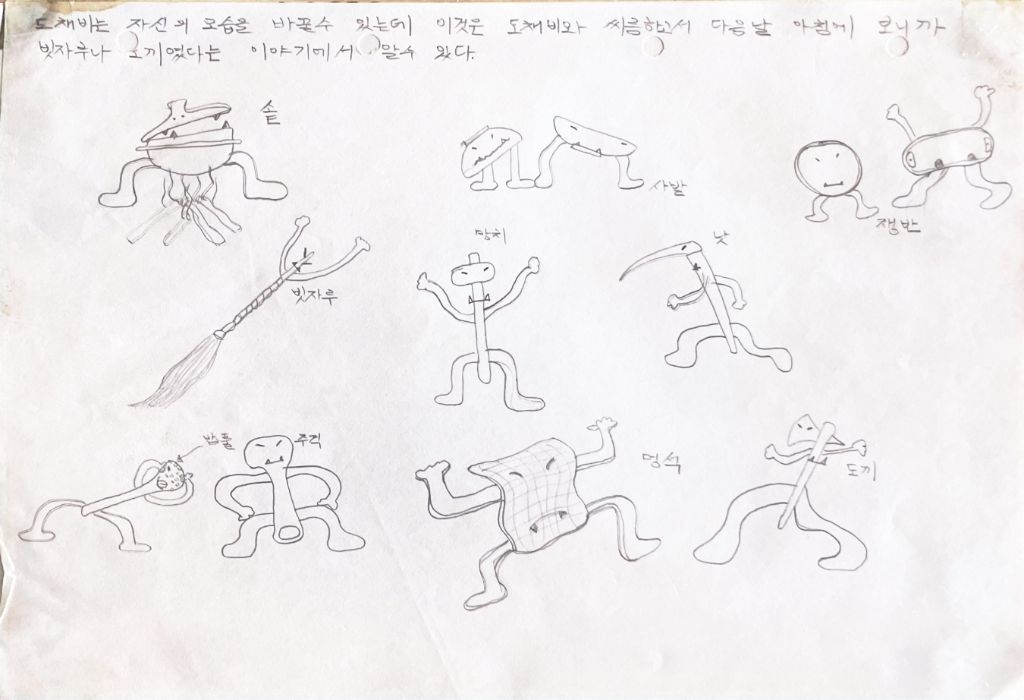 도채비는 자신의 모습을 바꿀수 있는데 이것은 도채비와 씨름하고서 다음날 아침에 보니까
빗자루나 도끼였다는 이야기에서 알수 있다.
솥
사발
쟁반
빗자루
망치
낫
밥풀
주걱
멍석
도끼